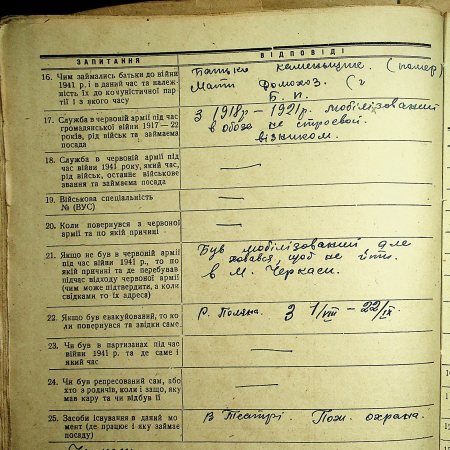 ЗАПИТАННЯ
ВІДПОВІДІ
16. Чим займались батьки до війни
1941 р. і в даний час та належ-
ність їх до комуністичної пар-
тії і з якого часу
Батько каменьщик. (помер)
Мати домохоз.
Б. п.
17. Служба в червоній армії під час
громадянської війни 1917—22
років, рід військ та займаєма
посада
З 1918р – 1921р. мобілізований
в обоз не строевой
візником.
18. Служба в червоній армії під
час війни 1941 року, який час,
рід військ, останнє військове
звання та займаєма посада
19. Військова спеціальність
№ (ВУС)
20. Коли повернувся з червоної
армії та по якій причині
21. Якщо не був в червоній армії
під час війни 1941 р., то по
якій причині та де перебував
підчас відходу червоної армії
(чим може підтвердити, а коли
свідками то їх адреса)
Був мобілізований але
ховався, щоб не йти.
в м. Черкаси.
22. Якщо був евакуйований, то ко-
ли повернувся та звідки саме
З 1/VIII – 22/IX.
23. Чи був в партизанах під час
війни 1941 р. та де саме і
який час
24. Чи був репресований сам, або
хто з родичів, коли і защо, яку
мав кару та чи відбув її
25. Засоби існування в даний мо-
мент (де працює і яку займає
посаду)
В Театрі. Пож. охрана.